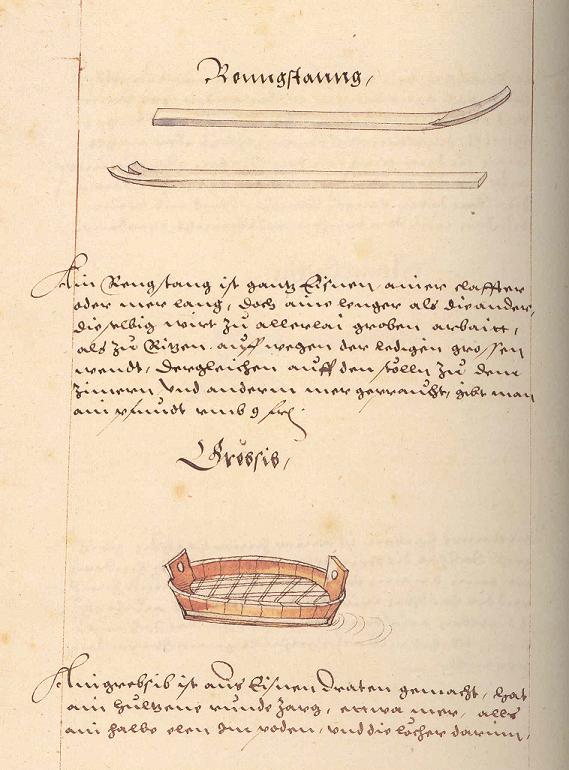 Renngstanng,
Ain Rengstang ist gantz Eisnen ainer claffter
oder mer lang, doch aine lenger als die ander,
dieselbig wirt zu allerlai groben arbait,
als zu Ritzen auff wegen der ledigen grossen
wendt, dergleichen auff den stolln zu dem
Zimern vnd anderm mer gepraucht, gibt man
ain pfundt vmb 9
Grobsib,
Ain grobsib ist aus Eisnen Draten gemacht, hat
ain hultzene runde Zarg, etwa mer, alls
ain halbe elen Im poden, vnd die locher darinn,